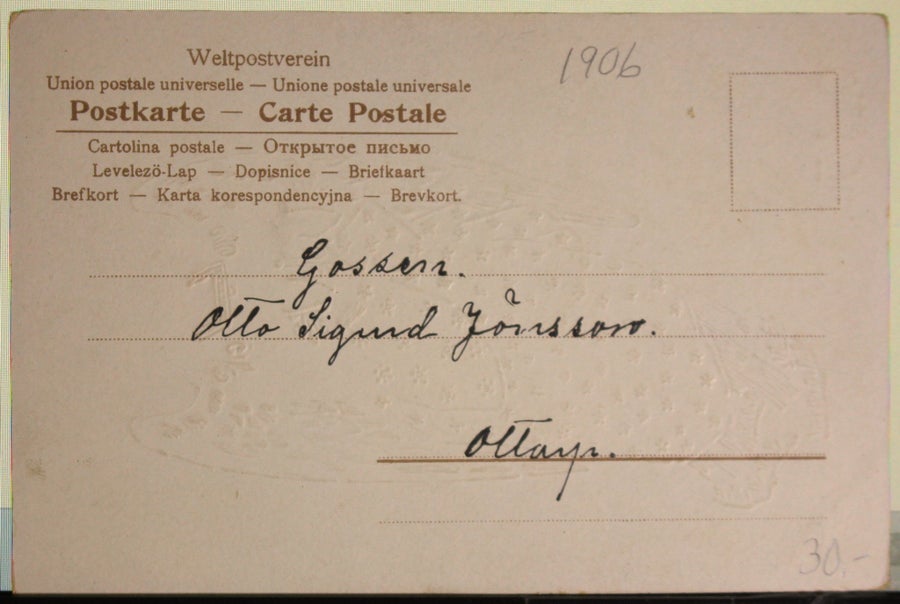 Weltpostverein
1906
Union postale universelle — Unione postale universale
Postkarte — Carte Postale
Cartolina postale — Открытое письмо
Levelező-Lap — Dopisnice — Briefkaart
Brefkort — Karta korespondencyjna — Brevkort.
Gossen.
Otto Sigurd Jönsson.
30.-